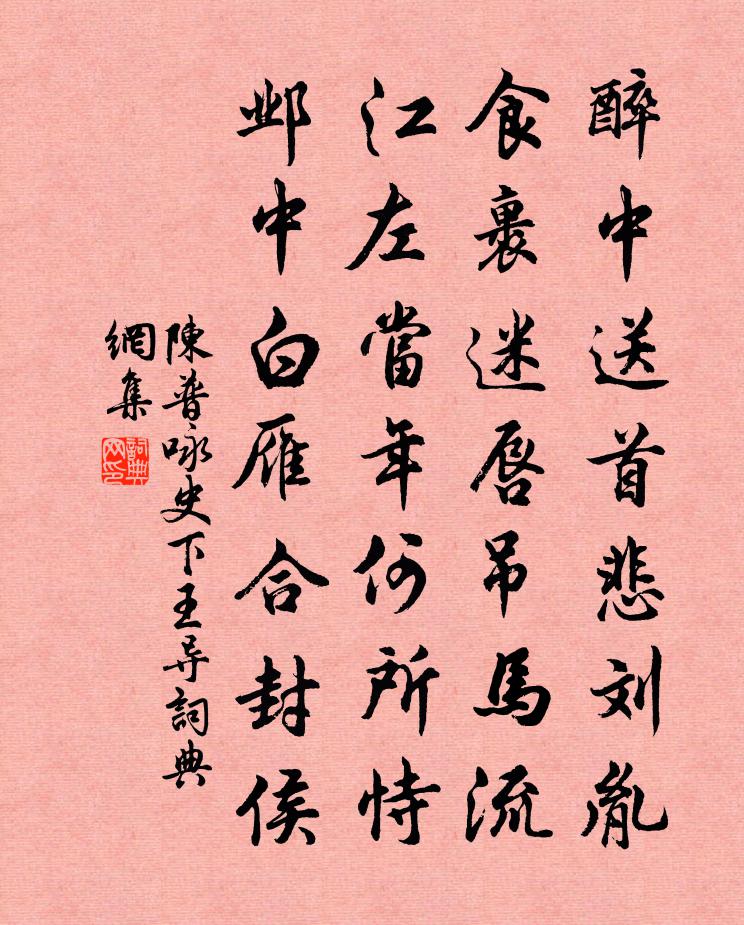 醉中送首悲刘胤
食裏迷唇吊馬流
江左當年何所恃
邺中白雁合封侯
陳普咏史下王导詞典
網集
詞典网印